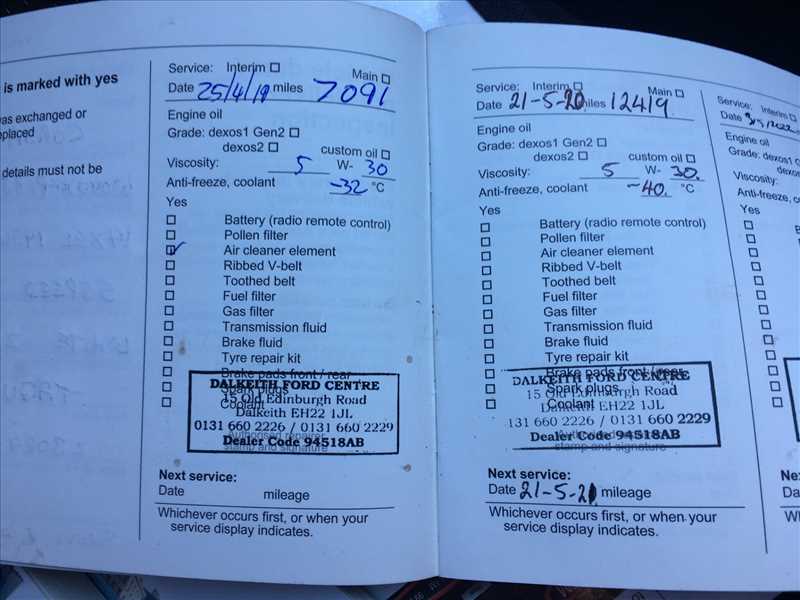 is marked with yes
was exchanged or
replaced
details must not be
Service: Interim Main
Date 25/4/19 miles 7091
Engine oil
Grade: dexos1 Gen2
dexos2 custom oil
Viscosity: 5 W- 30
Anti-freeze, coolant -32 °C
Yes
Battery (radio remote control)
Pollen filter
Air cleaner element
Ribbed V-belt
Toothed belt
Fuel filter
Gas filter
Transmission fluid
Brake fluid
Tyre repair kit
Brake pads front / rear
Spark plugs
Coolant
DALKEITH FORD CENTRE
15 Old Edinburgh Road
Dalkeith EH22 1JL
0131 660 2226 / 0131 660 2229
Dealer Code 94518AB
Authorised repairer
stamp and signature
Next service:
Date mileage
Whichever occurs first, or when your
service display indicates.
Service: Interim Main
Date 21-5-20 miles 12419
Engine oil
Grade: dexos1 Gen2
dexos2 custom oil
Viscosity: 5 W- 30.
Anti-freeze, coolant -40. °C
Yes
Battery (radio remote control)
Pollen filter
Air cleaner element
Ribbed V-belt
Toothed belt
Fuel filter
Gas filter
Transmission fluid
Brake fluid
Tyre repair kit
Brake pads front / rear
Spark plugs
Coolant
DALKEITH FORD CENTRE
15 Old Edinburgh Road
Dalkeith EH22 1JL
131 660 2226 / 0131 660 2229
Dealer Code 94518AB
stamp and signature
Next service:
Date 21-5-21 mileage
Whichever occurs first, or when your
service display indicates.
Service: Interim
Date 3/5/2022
Engine oil
Grade: dexos1
dexos
Viscosity:
Anti-freeze, cool
Yes
Ne
Da
Wh